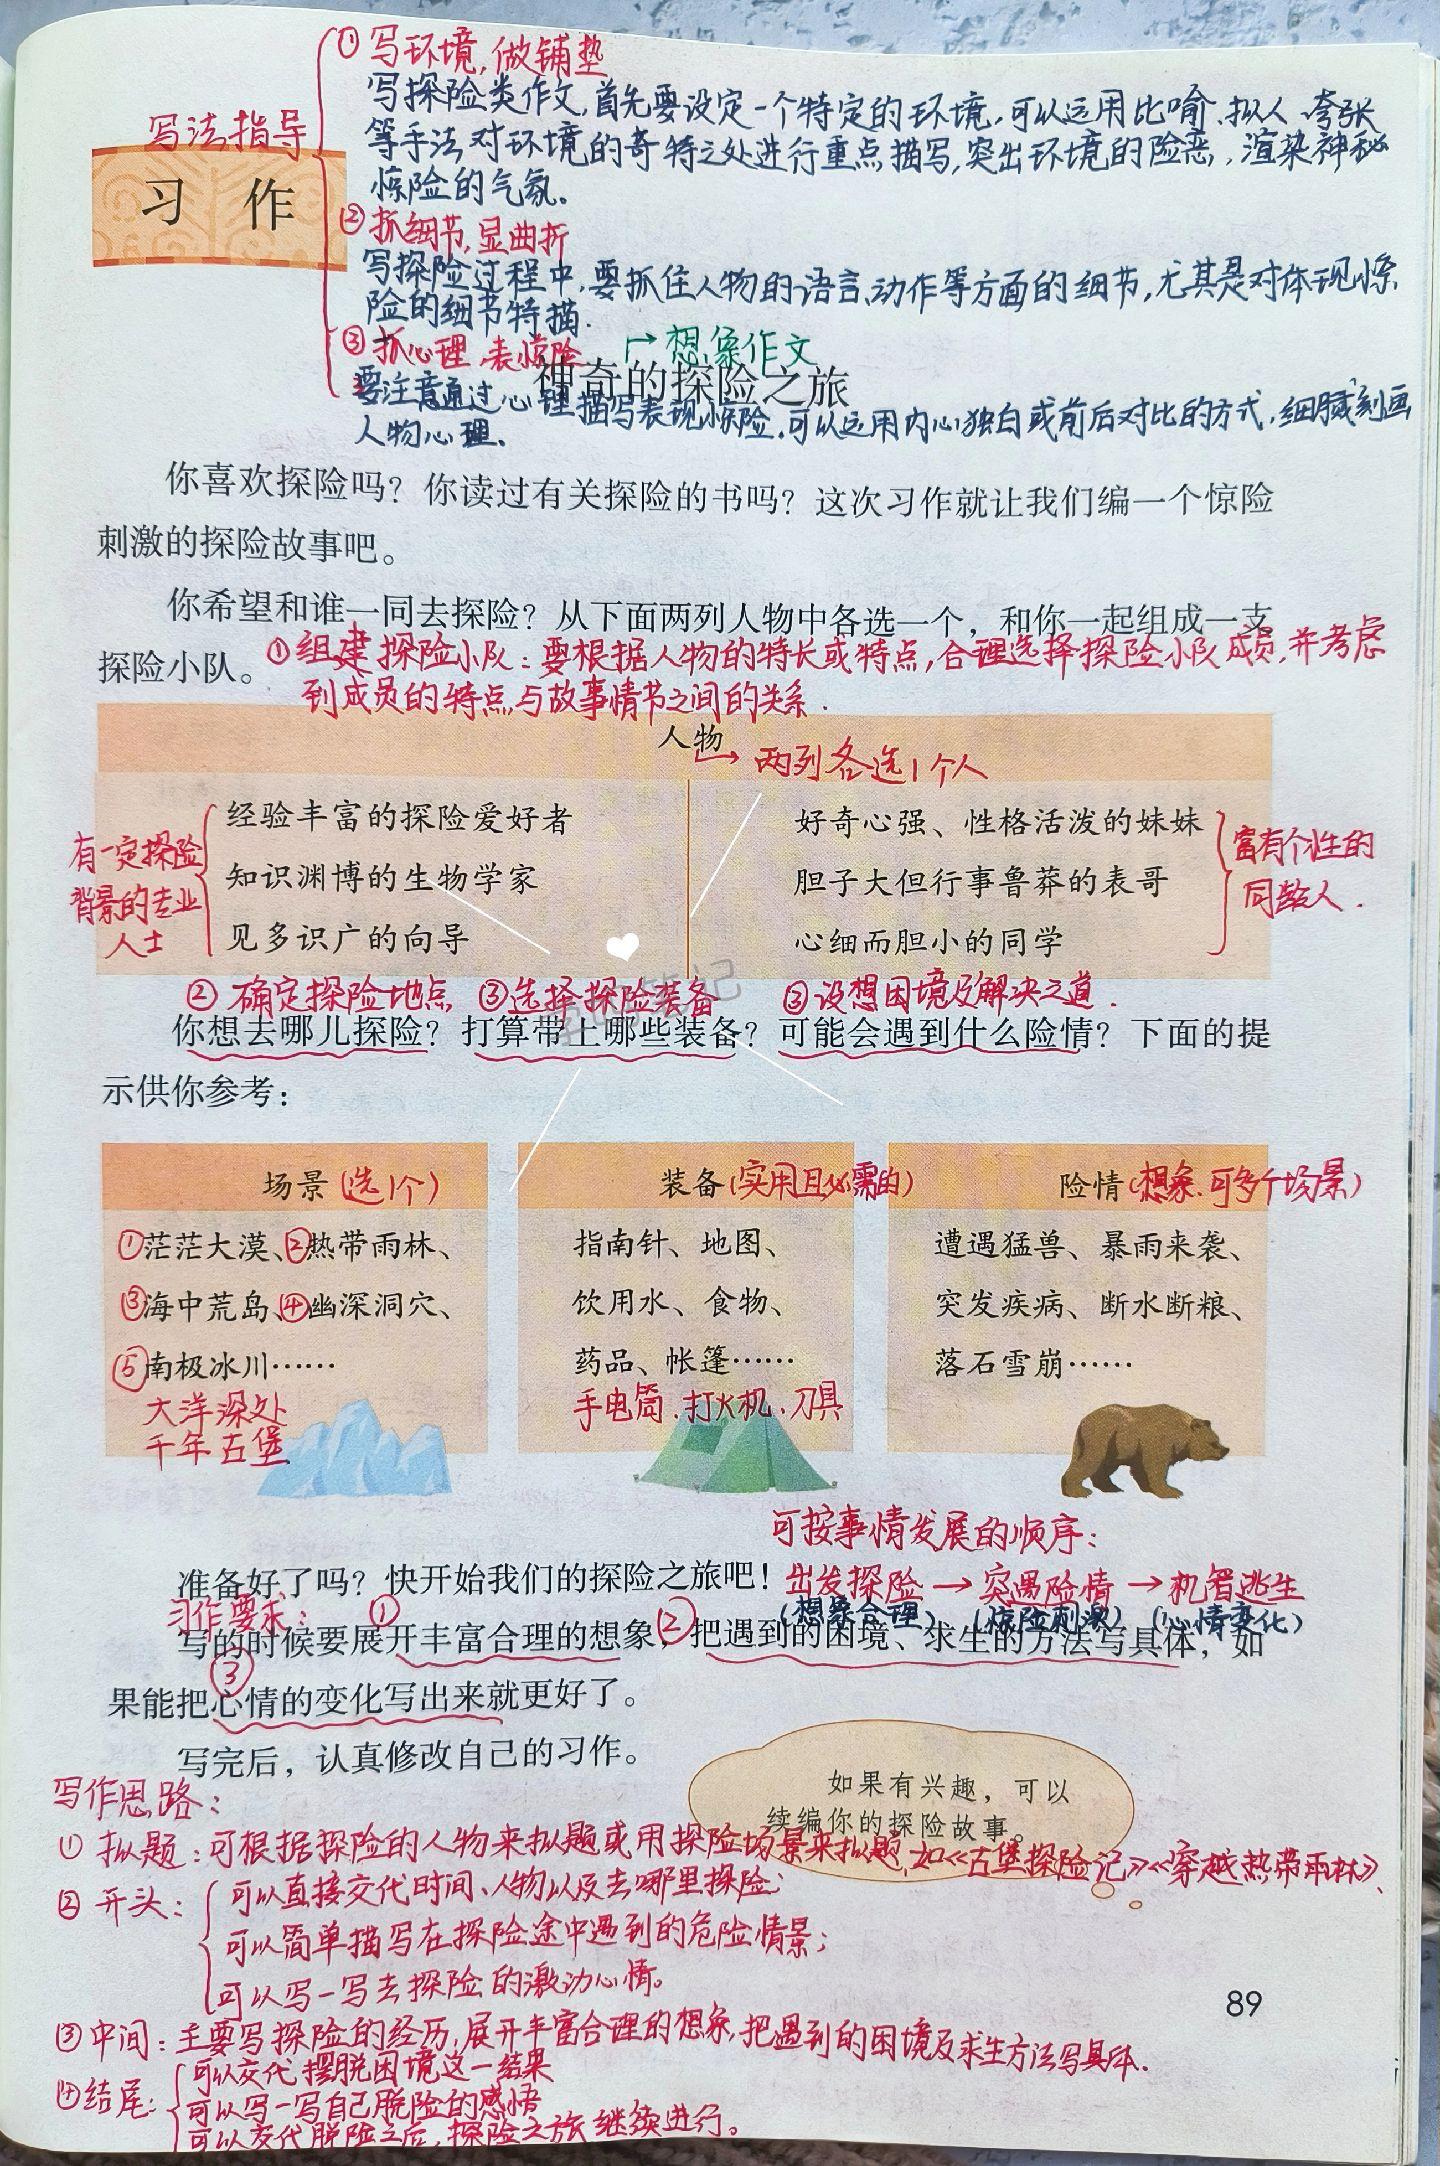 ①写环境,做铺垫
写探险类作文,首先要设定一个特定的环境,可以运用比喻、拟人、夸张
写法指导
等手法对环境的奇特之处进行重点描写,突出环境的险恶,渲染神秘
惊险的气氛。
习 作
②抓细节,显曲折
写探险过程中,要抓住人物的语言、动作等方面的细节,尤其是对体现惊
险的细节特描.
③抓心理,表惊险
→想象作文
神奇的探险之旅
要注意通过心理描写表现惊险,可以运用内心独白或前后对比的方式,细腻刻画
人物心理.
你喜欢探险吗?你读过有关探险的书吗?这次习作就让我们编一个惊险
刺激的探险故事吧。
你希望和谁一同去探险?从下面两列人物中各选一个,和你一起组成一支
探险小队。
①组建探险小队:要根据人物的特长或特点,合理选择探险小队成员,并考虑
到成员的特点与故事情节之间的关系.
人物
→两列各选1个人
经验丰富的探险爱好者
知识渊博的生物学家
见多识广的向导
有一定探险
背景的专业
人士
好奇心强、性格活泼的妹妹
胆子大但行事鲁莽的表哥
心细而胆小的同学
富有个性的
同龄人.
②确定探险地点 ③选择探险装备 ③设想困境及解决之道.
你想去哪儿探险?打算带上哪些装备?可能会遇到什么险情?下面的提
示供你参考:
场景(选1个)
①茫茫大漠、②热带雨林、
③海中荒岛、④幽深洞穴、
⑤南极冰川……
大洋深处
千年古堡
装备(实用且必需的)
指南针、地图、
饮用水、食物、
药品、帐篷……
手电筒、打火机、刀具
险情(想象,可多个场景)
遭遇猛兽、暴雨来袭、
突发疾病、断水断粮、
落石雪崩……
可按事情发展的顺序:
准备好了吗?快开始我们的探险之旅吧!
出发探险→突遇险情→机智逃生
(想象合理) (惊险刺激) (心情变化)
习作要求: ① ②
写的时候要展开丰富合理的想象,把遇到的困境、求生的方法写具体,如
③
果能把心情的变化写出来就更好了。
写完后,认真修改自己的习作。
如果有兴趣,可以
续编你的探险故事。
写作思路:
①拟题:可根据探险的人物来拟题或用探险场景来拟题,如《古堡探险记》《穿越热带雨林》、
②开头:
可以直接交代时间、人物以及去哪里探险;
可以简单描写在探险途中遇到的危险情景;
可以写一写去探险的激动心情。
89
③中间:主要写探险的经历,展开丰富合理的想象,把遇到的困境及求生方法写具体.
④结尾:
可以交代摆脱困境这一结果
可以写一写自己脱险的感悟
可以交代脱险之后,探险之旅继续进行。